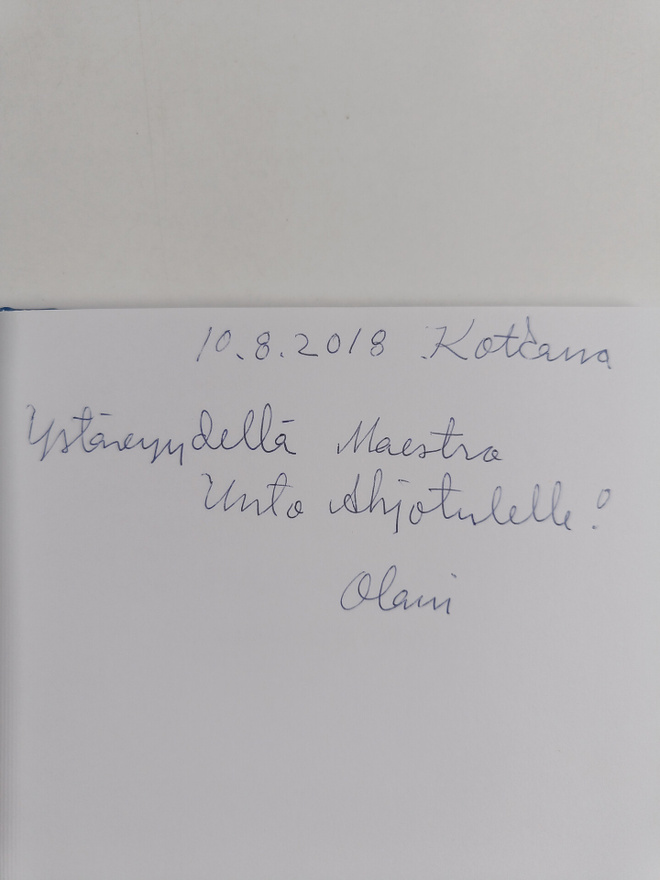 10.8.2018
Ystävyydellä Maestro
Unto Ahjotulelle!
Olavi